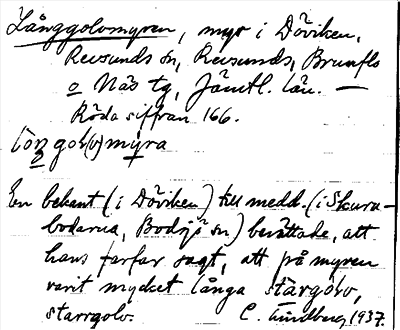 Långgolomyren, myr i Döviken,
Revsunds sn, Revsunds, Brunflo
o Näs tg, Jämtl. län. —
Röda siffran 166.
loŋgoḷ(v)myra
En bekant (i Döviken) till medd. (i Skura-
bodarna, Bodsjö sn) berättade, att
hans farfar sagt, att på myren
varit mycket långa stargolv,
starrgolv. C. Lindberg, 1937.